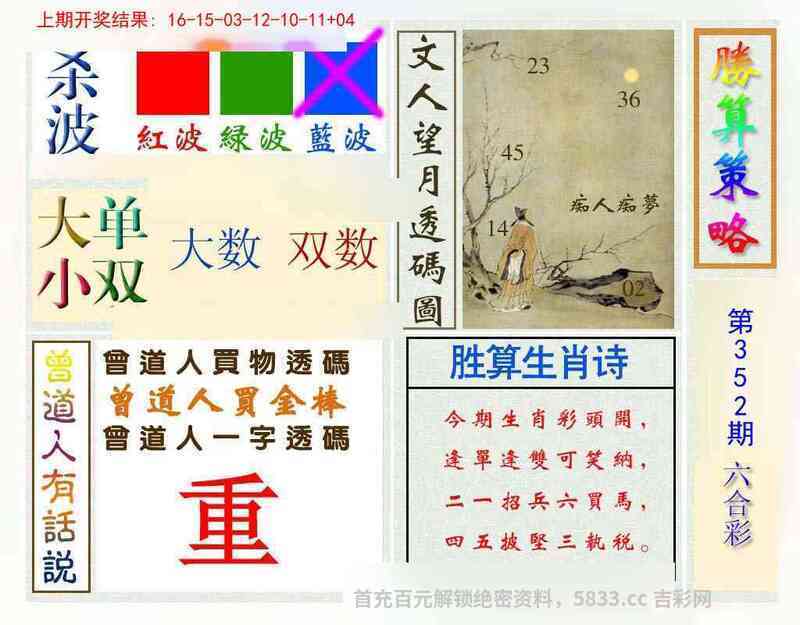 上期开奖结果: 16-15-03-12-10-11+04
杀波
紅波 緑波 藍波
大单
小双
大数 双数
文人望月透碼圖
23
36
45
痴人痴夢
14
02
勝算策略
曾道人有話説
曾道人買物透碼
曾道人買金棒
曾道人一字透碼
重
胜算生肖诗
今期生肖彩頭開，
逢單逢雙可笑納，
二一招兵六買馬，
四五披堅三執税。
第352期 六合彩
首充百元解锁绝密资料，5833.cc 吉彩网